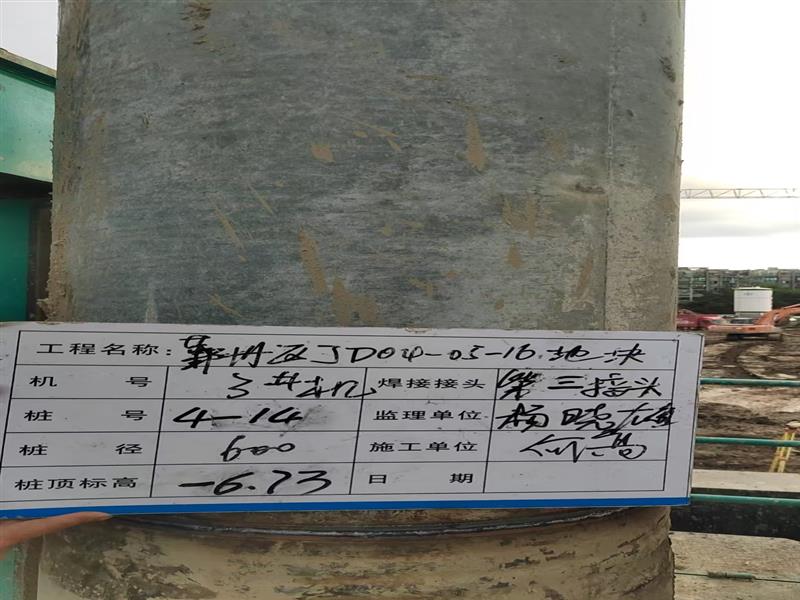 工程名称: JD04-05-16地块
机 号 3#机 焊接接头 第三接头
桩 号 4-14 监理单位 杨晓雄
桩 径 600 施工单位
桩顶标高 -6.73 日 期